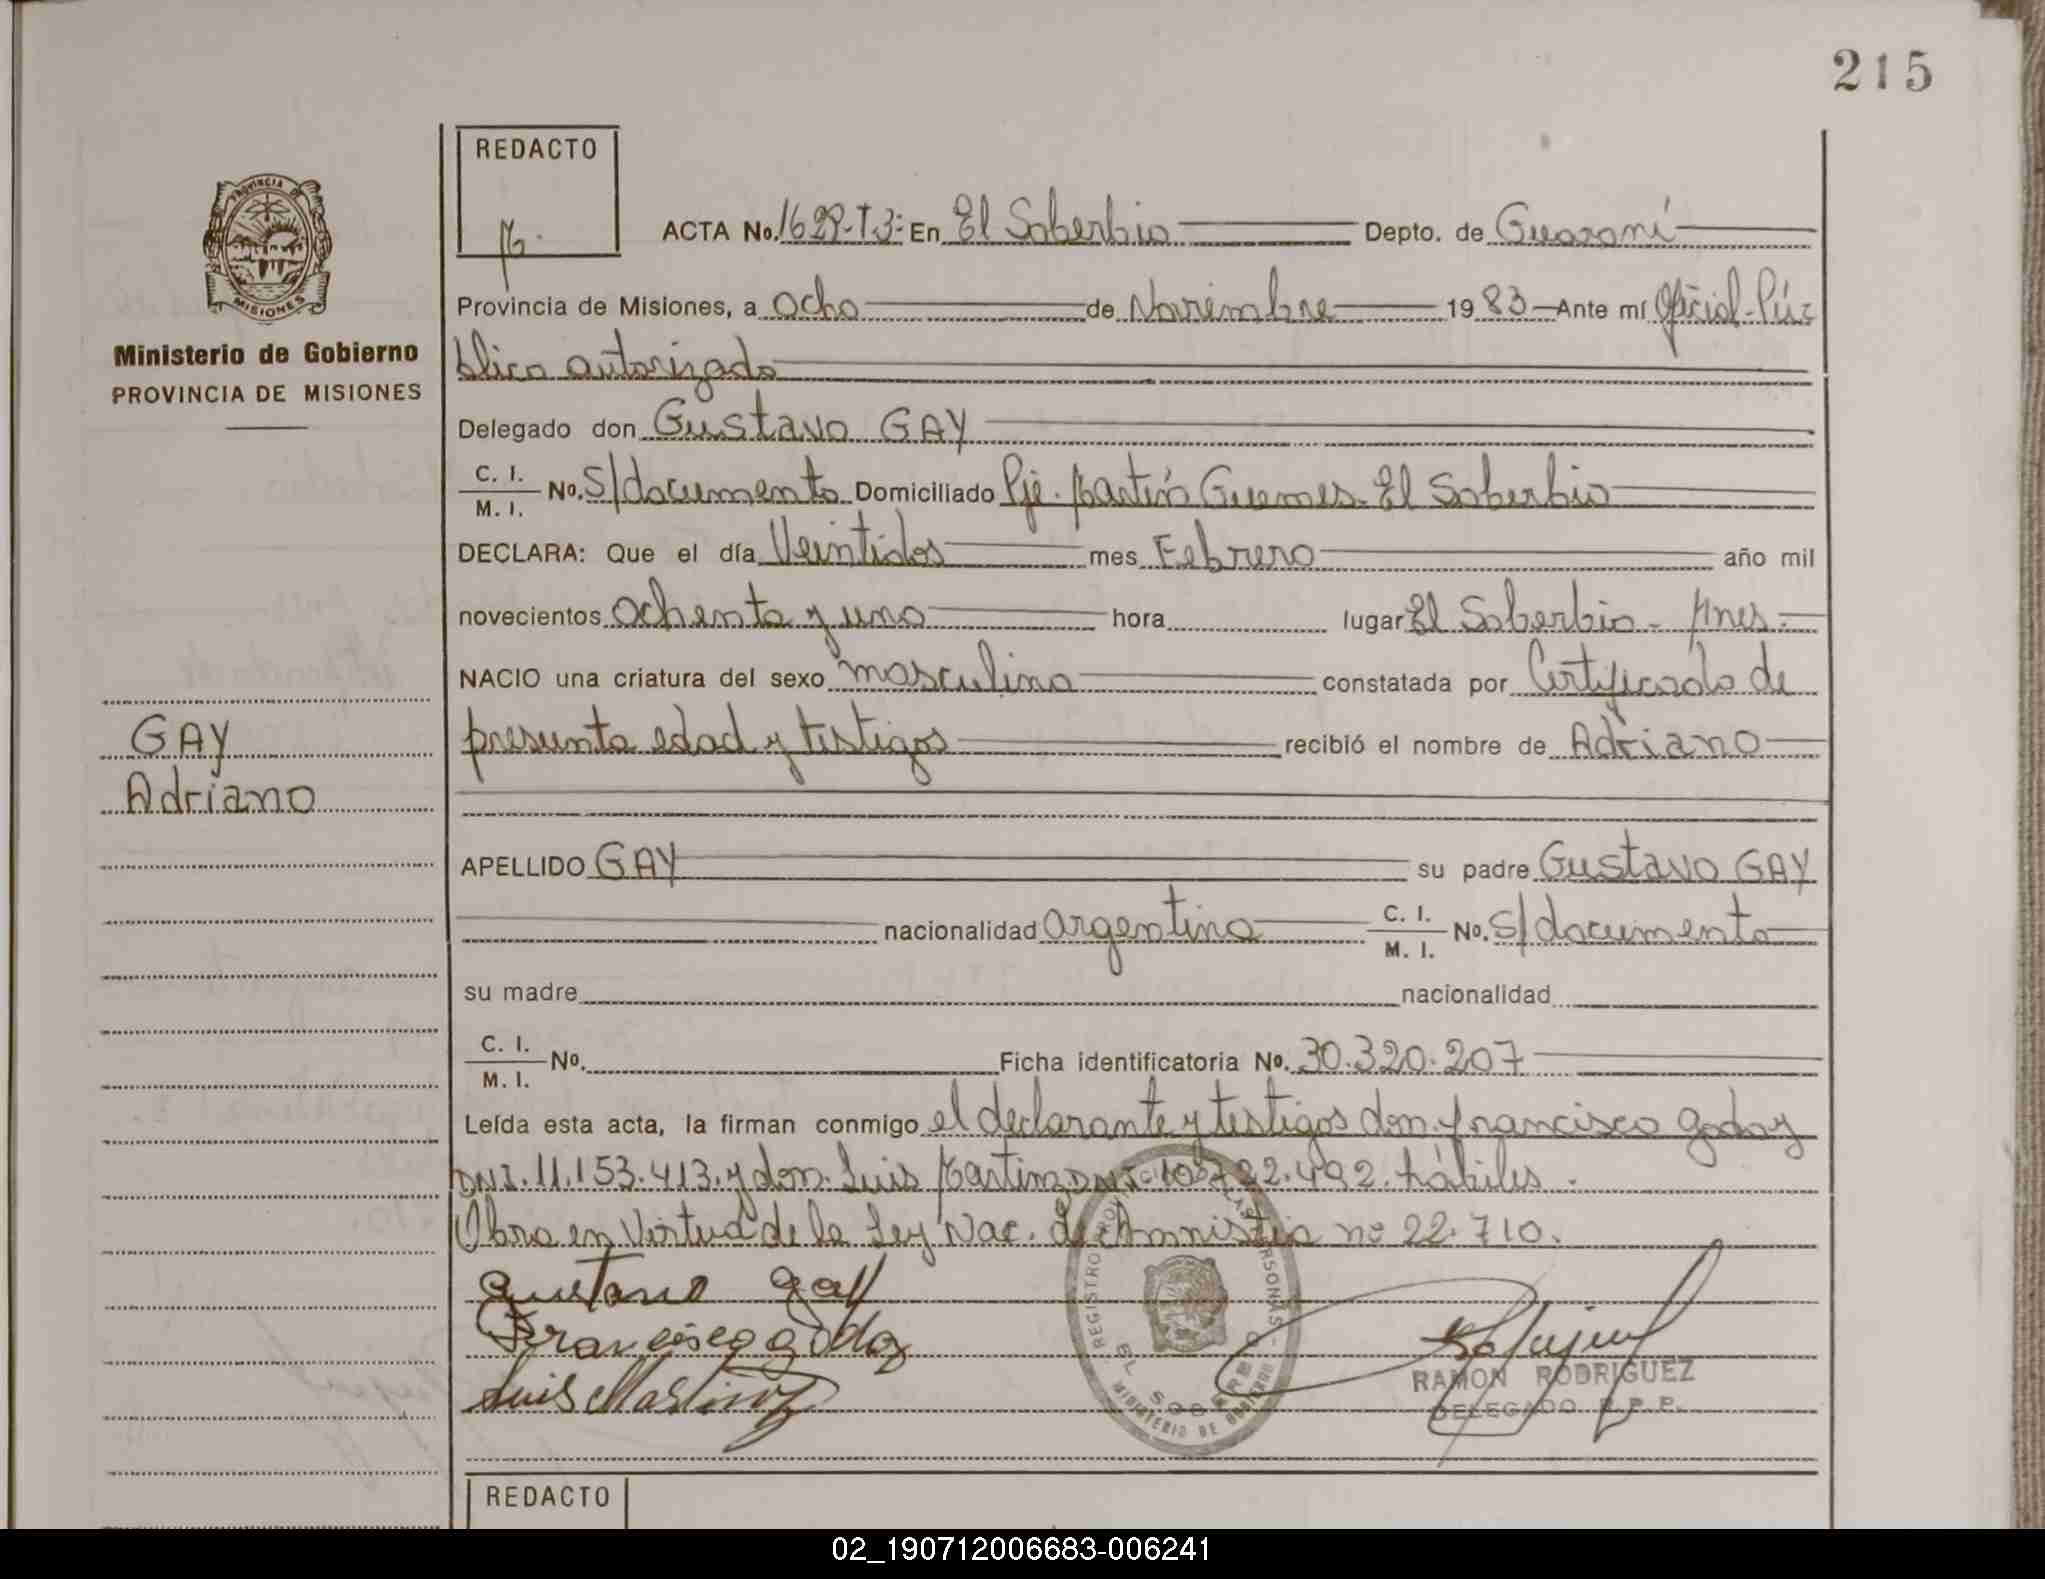 215
REDACTO
ACTA No. 1629-T3- En El Soberbio Depto. de Guaraní
Provincia de Misiones, a Ocho de Noviembre 1983 Ante mí Oficial Pú-
blico autorizado
Ministerio de Gobierno
PROVINCIA DE MISIONES
Delegado don Gustavo GAY
C. I. M. I. No. S/documento Domiciliado Pje. Martín Guemes. El Soberbio
DECLARA: Que el día Veintidos mes Febrero año mil
novecientos ochenta y uno hora lugar El Soberbio - Mnes.-
NACIO una criatura del sexo masculino constatada por Certificado de
presunta edad y testigos recibió el nombre de Adriano
GAY
Adriano
APELLIDO GAY su padre Gustavo GAY
nacionalidad argentina C. I. M. I. No. S/documento
su madre nacionalidad
C. I. M. I. No. Ficha identificatoria No. 30.320.207
Leída esta acta, la firman conmigo el declarante y testigos don francisco godoy
DNI. 11.153.413. y don Luis Martinz DNI 722.492. hábiles.
Obra en Virtud de la Ley Nac. de Amnistia nº 22.710.
gustavo gay
Francisco godoy
Luis Martinz
REGISTRO PROV. DE LAS PERSONAS
EL SOBERBIO
MINISTERIO DE GOBIERNO
RAMON RODRIGUEZ
DELEGADO R.P.P.
REDACTO
02_190712006683-006241